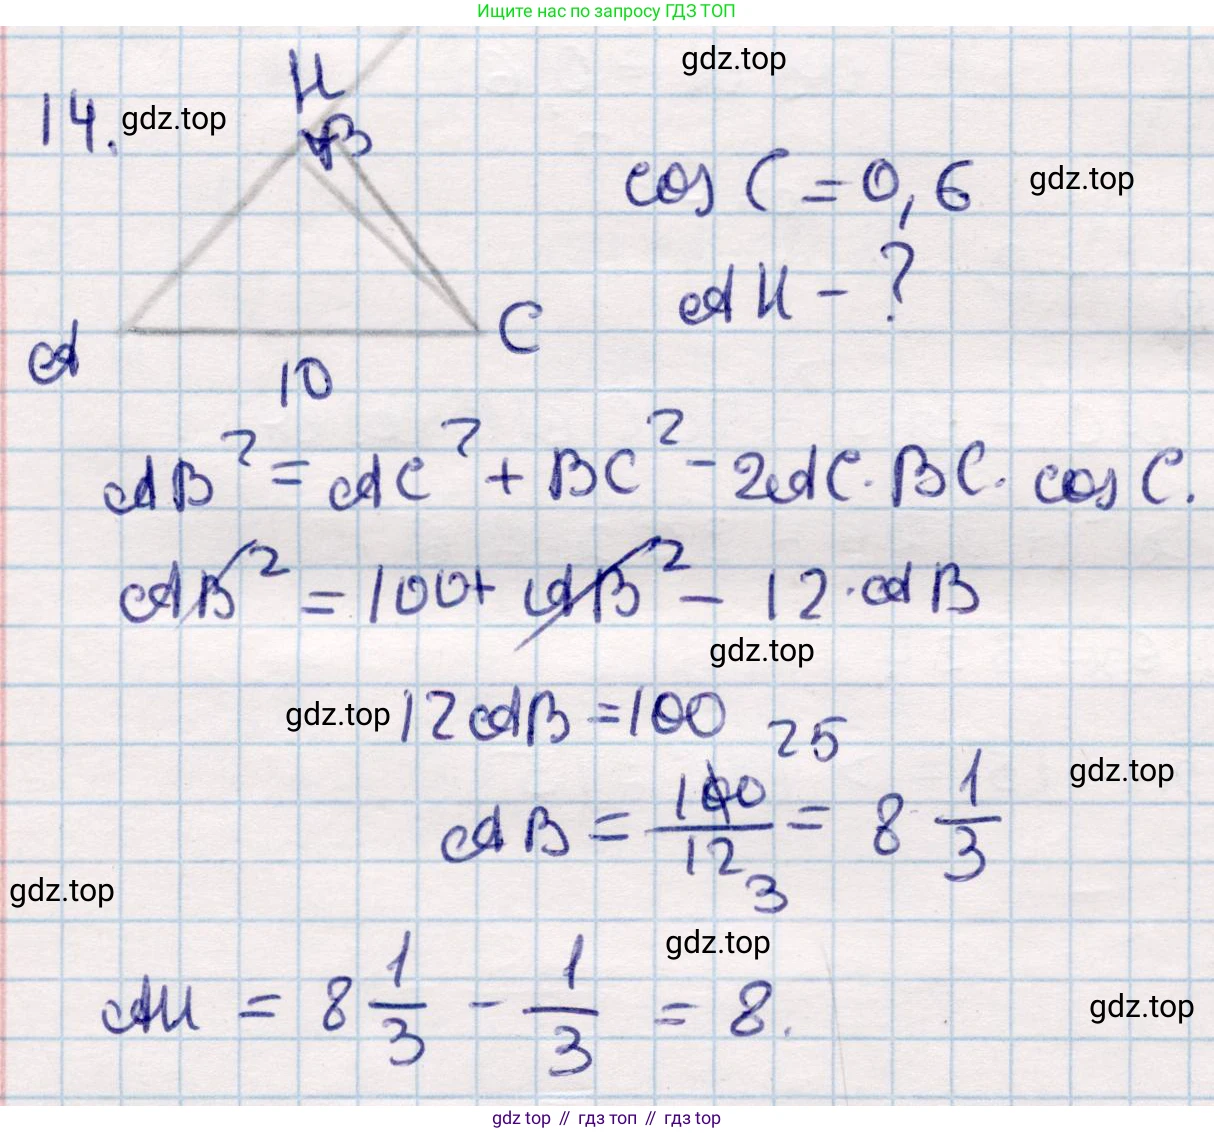 Ищите нас по запросу ГДЗ ТОП
gdz.top
H
14.
gdz.top
B
cos C = 0,6
gdz.top
AH - ?
A
C
10
AB² = AC² + BC² - 2AC · BC · cos C.
AB² = 100 + AB² - 12 · AB
gdz.top
gdz.top
12AB = 100
25
gdz.top
AB = 100/12 = 8 1/3
3
gdz.top
gdz.top
AH = 8 1/3 - 1/3 = 8.
gdz.top
gdz top // гдз топ // гдз top